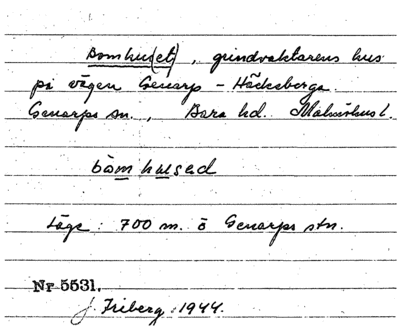 Bomhus(et), grindvaktarens hus
på vägen Genarp - Häckeberga.
Genarps sn., Bara hd. Malmöhus l.
bòm hused
Läge: 700 m. ö Genarps stn.
Nr 5531.
J. Friberg 1944.